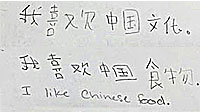 我喜欢中国文化。
我喜欢中国食物.
I like Chinese food.